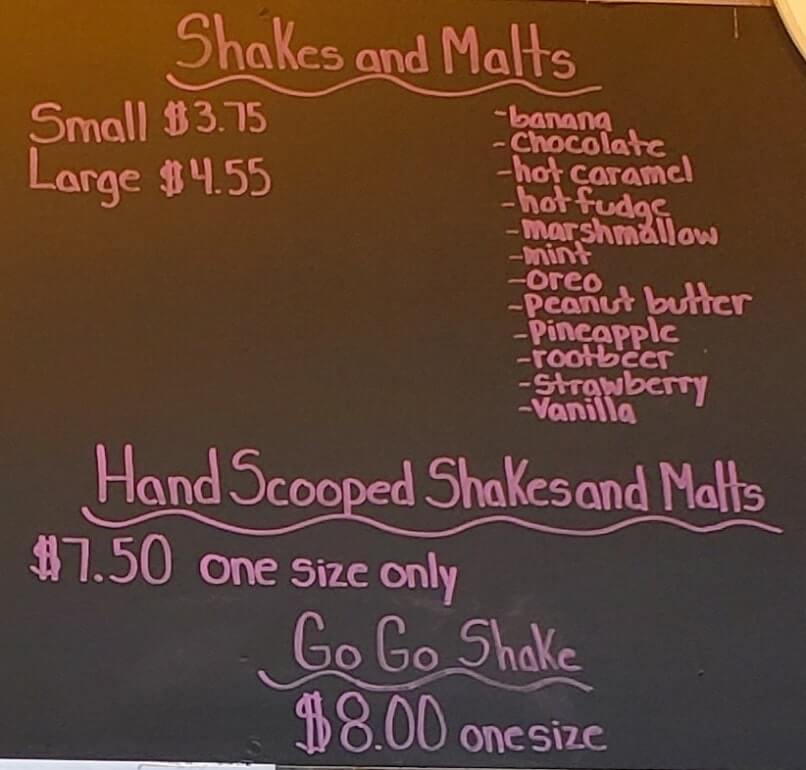 Shakes and Malts
Small $3.75
Large $4.55
-banana
-chocolate
-hot caramel
-hot fudge
-marshmallow
-mint
-oreo
-peanut butter
-pineapple
-rootbeer
-strawberry
-vanilla
Hand Scooped Shakes and Malts
$7.50 one size only
Go Go Shake
$8.00 one size